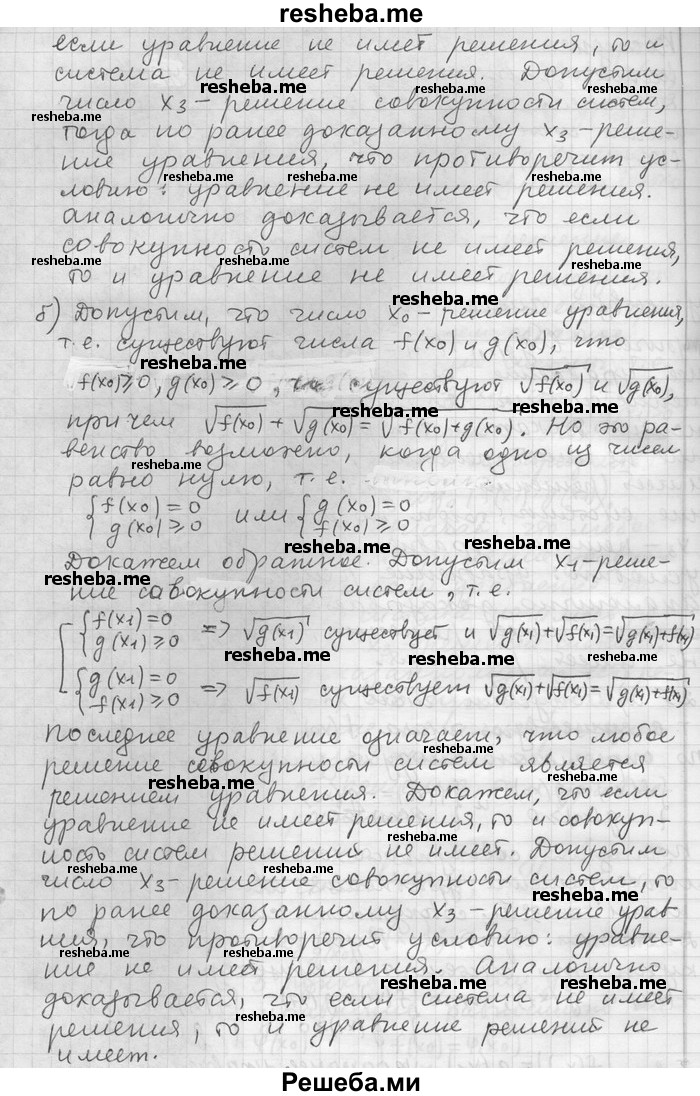 resheba.me
если уравнение не имеет решения, то и
система не имеет решения. Допустим
число x₃ – решение совокупности систем,
тогда по ранее доказанному x₃ – реше-
ние уравнения, что противоречит ус-
ловию: уравнение не имеет решения.
аналогично доказывается, что если
совокупность систем не имеет решения,
то и уравнение не имеет решения.
б) Допустим, что число x₀ – решение уравнения,
т.е. существуют числа f(x₀) и g(x₀), что
f(x₀)≥0, g(x₀)≥0, существуют √f(x₀) и √g(x₀),
причем √f(x₀) + √g(x₀) = √f(x₀)+g(x₀). Но это ра-
венство возможно, когда одно из чисел
равно нулю, т.е.
{ f(x₀)=0 или { g(x₀)=0
g(x₀)≥0 f(x₀)≥0
Докажем обратное. Допустим x₁ – реше-
ние совокупности систем, т.е.
[ { f(x₁)=0
g(x₁)≥0 => √g(x₁) существует и √g(x₁)+√f(x₁)=√g(x₁)+f(x₁)
{ g(x₁)=0
f(x₁)≥0 => √f(x₁) существует √g(x₁)+√f(x₁)=√g(x₁)+f(x₁)
Последнее уравнение означает, что любое
решение совокупности систем является
решением уравнения. Докажем, что если
уравнение не имеет решения, то и совокуп-
ность систем решений не имеет. Допустим
число x₃ – решение совокупности систем, то
по ранее доказанному x₃ – решение урав
ния, что противоречит условию: уравне-
ние не имеет решения. Аналогично
доказывается, что если система не имеет
решения, то и уравнение решений не
имеет.
Решеба.ми